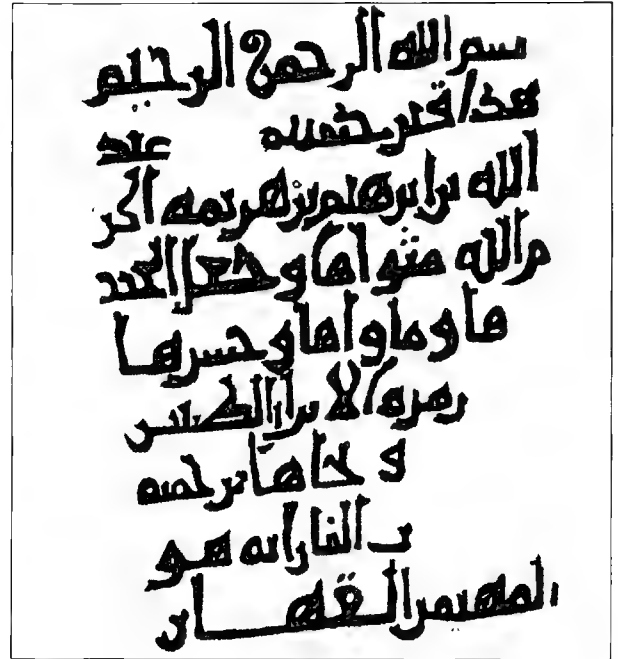 بسم الله الرحمن الرحيم
هذا قبر
الله بن ابرهيم بن هريمه اكر
م الله مثواها وجعل
ها وماواها وحشرها
زمرة الابرار الطيبين
و نجاها برحمته
النار انه هو
المهيمن القهار